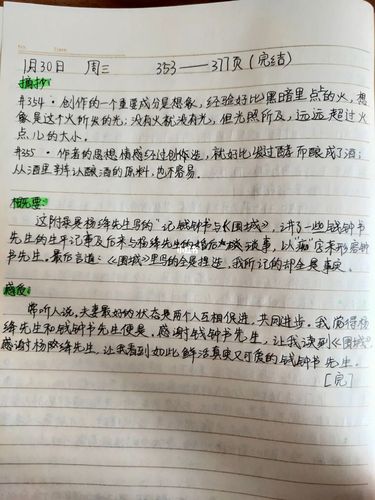 1月30日 周三 353——377页(完结)
摘抄:
#354·创作的一个重要成分是想象,经验好比黑暗里点的火,想
象是这个火所发的光;没有火就没有光,但光照所及,远远超过火
点儿的大小。
#355·作者的思想情感经过创作造,就好比发过酵而酿成了酒;
从酒里辨认酿酒的原料,也不容易。
概要:
这附录是杨绛先生写的“记钱钟书与《围城》,讲了一些钱钟书
先生的生平记事及后来与杨绛先生的婚后谈事,以“痴”字来形容钱钟
书先生。最后言道:《围城》里写的全是捏造,我所记的却全是事实。
感受:
常听人说,夫妻最好的状态是两个人互相促进,共同进步。我觉得杨
绛先生和钱钟书先生便是,感谢钱钟书先生,让我读到《围城》
感谢杨绛先生,让我看到如此鲜活真实又可爱的钱钟书先生。
[完]